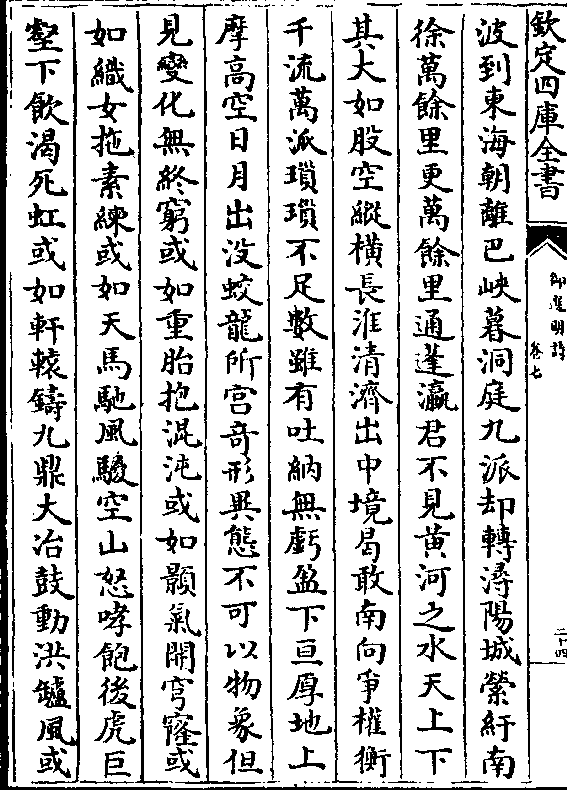 欽定四庫全書
御選明詩
卷七
二十四
波到東海朝離巴峽暮洞庭九派却轉潯陽城縈紆南
徐萬餘里更萬餘里通蓬瀛君不見黄河之水天上下
其大如股空縱橫長淮清濟出中境曷敢南向爭權衡
千流萬派瑣瑣不足數雖有吐納無虧盈下亘厚地上
摩高空日月出没蛟龍所宫竒形異態不可以物象但
見變化無終窮或如重胎抱混沌或如顥氣開穹窿或
如織女拖素練或如天馬馳風騣空山怒哮飽後虎巨
壑下飲渴死虹或如軒轅鑄九鼎大冶鼓動洪鑪風或